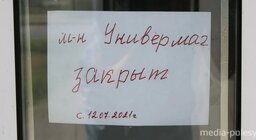 м-н Универмаг
закрыт
с 12.07.2021г
media-polesye